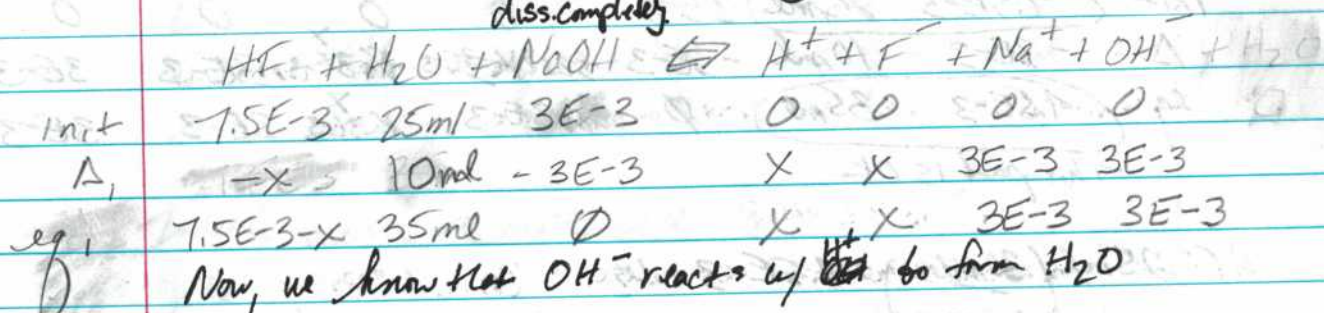 diss. completely
HF + H2O + NaOH ⇌ H+ + F- + Na+ + OH- + H2O
init 7.5E-3 25ml 3E-3 0 0 0 0
Δ1 -x 10ml -3E-3 x x 3E-3 3E-3
eq1 7.5E-3-x 35ml Ø x x 3E-3 3E-3
Now, we know that OH- reacts w/ H+ to form H2O